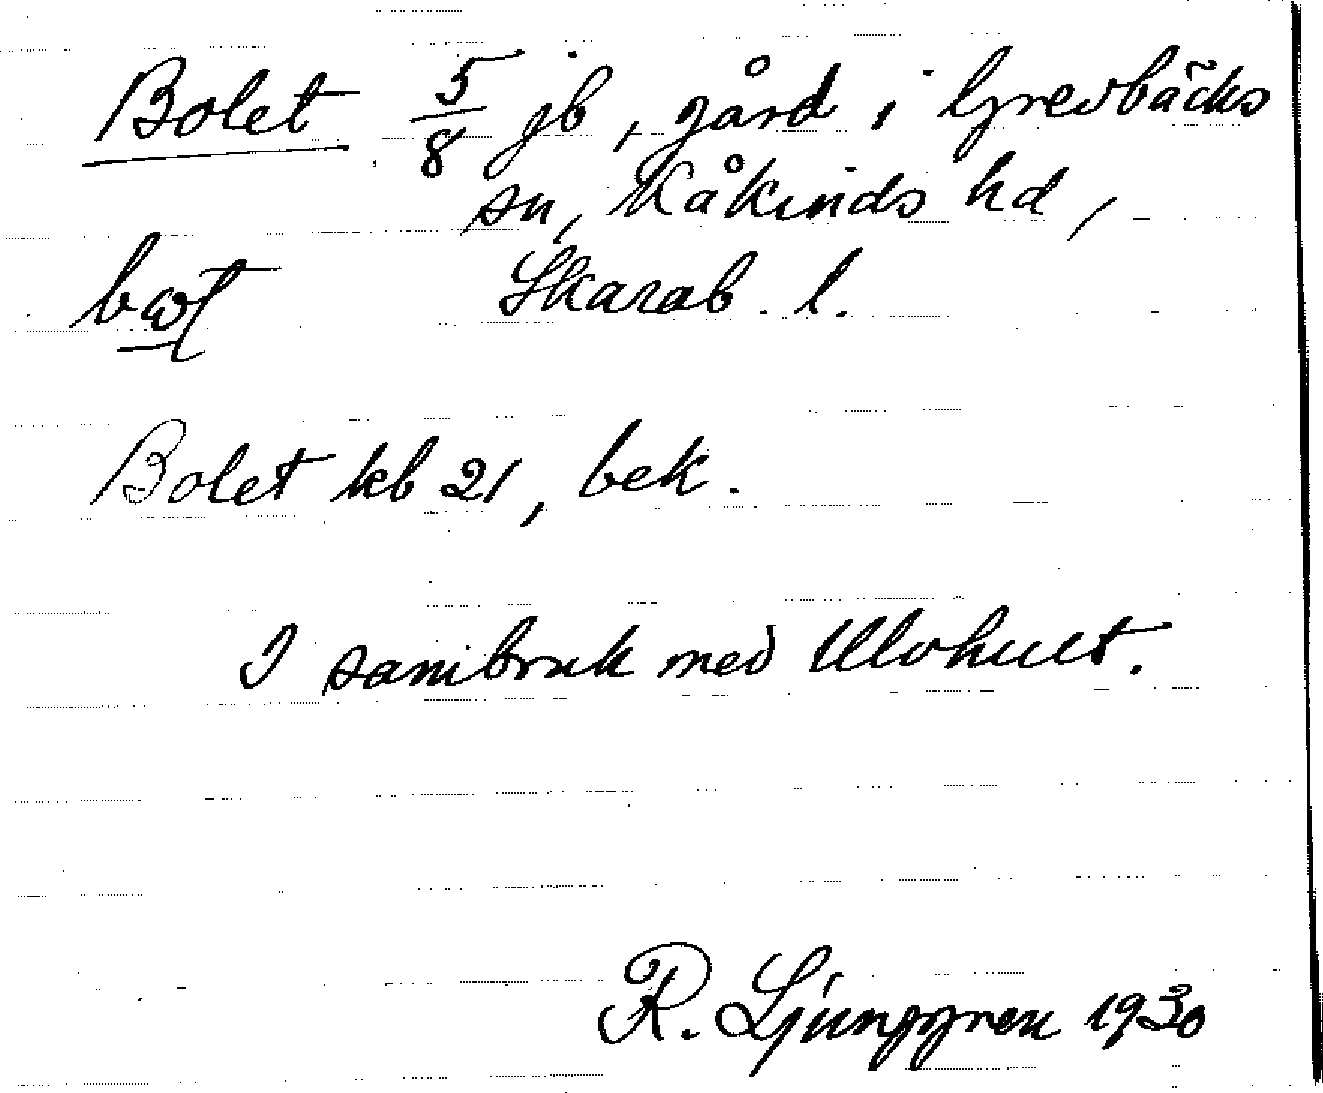 Bolet 5/8 jb, gård i Grevbäcks
sn, Kåkinds hd,
Skarab. l.
Bolet kb 21, bek.
I sambruk med Ulvhult.
R. Ljunggren 1930